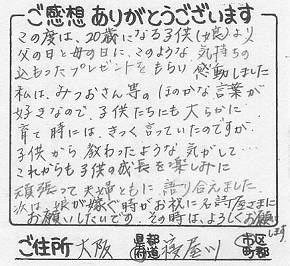 ご感想ありがとうございます
この度は、20歳になる子供(娘)より
父の日と母の日に、このような気持ちの
込もったプレゼントをもらい感動しました
私は、みつおさん専のほのかな言葉が
好きなので、子供たちにも大らかに
育て時には、きっく言っていたのですが
子供から教わったような気がして…
これからも子供の成長を楽しみに
頑張って夫婦ともに語り合えました
次は、娘が嫁ぐ時がお祝に名詩屋さまに
お願いしたいです。その時は、よろしくお願い
します
ご住所 大阪 都道府県 寝屋川 市区町郡